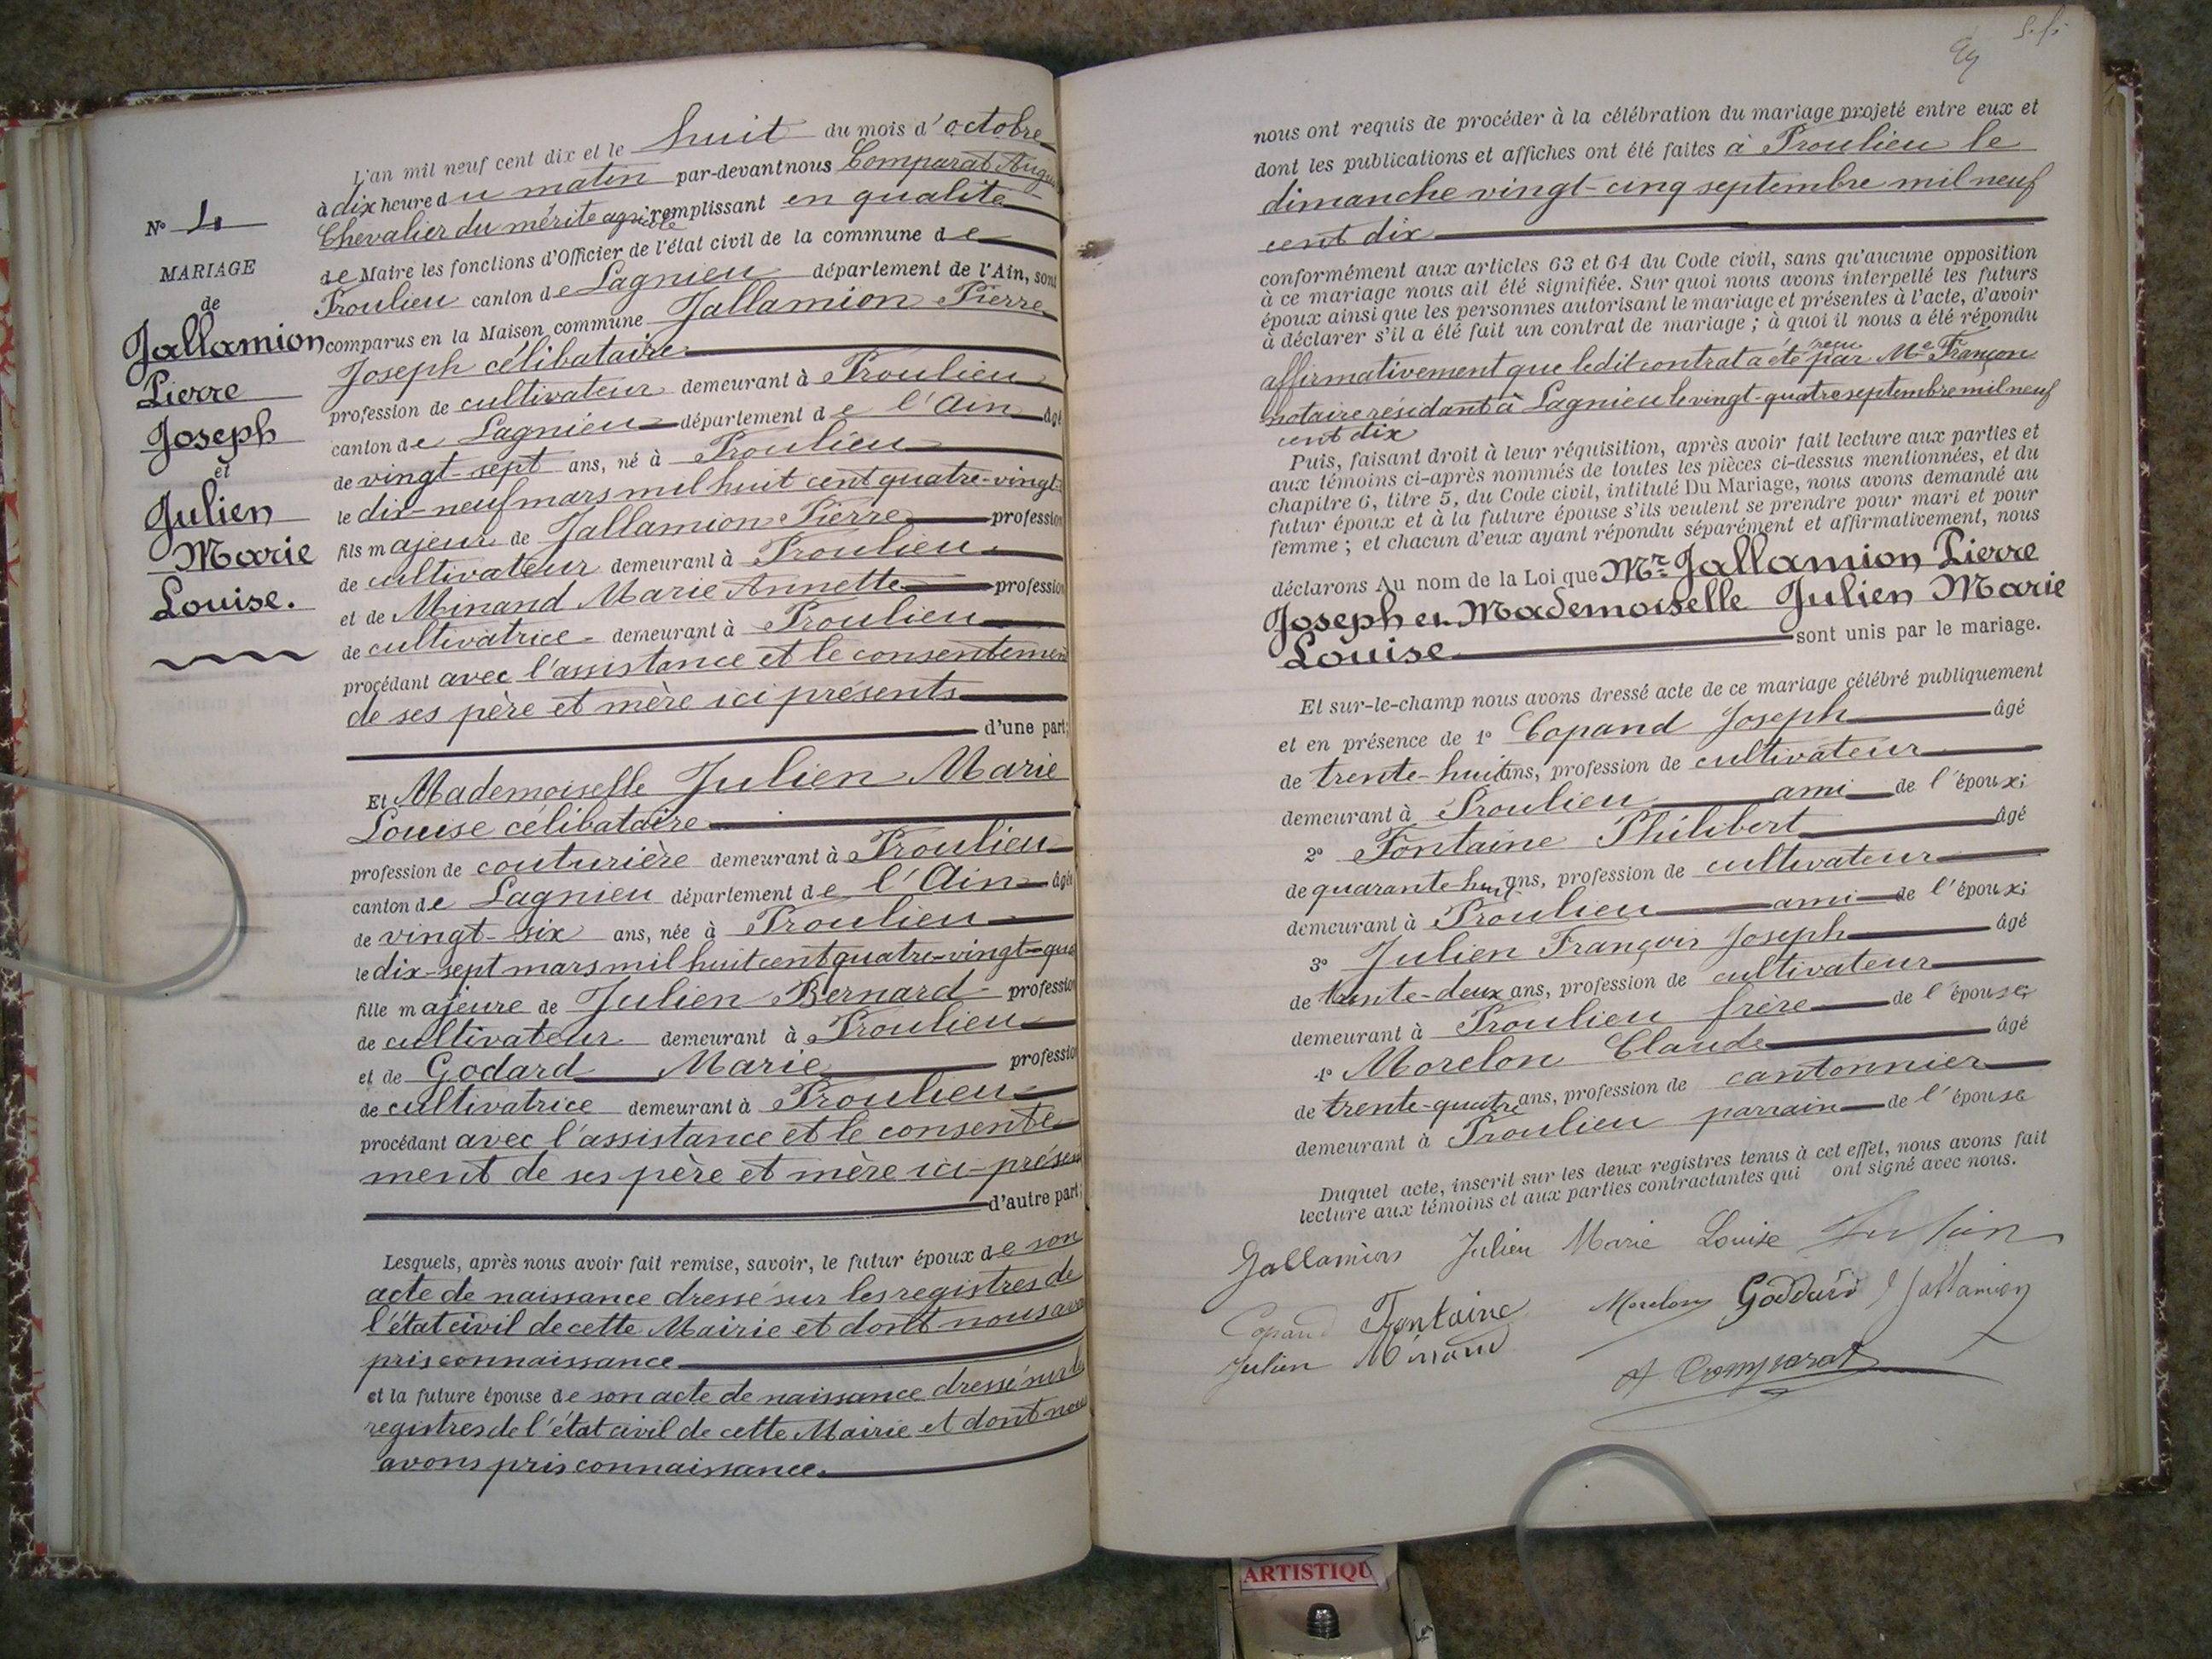 L'an mil neuf cent dix et le huit du mois d'octobre
à dix heure du matin par-devant nous Comparat Augu
Chevalier du mérite agricole remplissant en qualité
de Maire les fonctions d'Officier de l'état civil de la commune de
Proulieu canton de Lagnieu département de l'Ain, sont
comparus en la Maison commune Jallamion Pierre
Joseph célibataire
profession de cultivateur demeurant à Proulieu
canton de Lagnieu département de l'Ain âgé
de vingt-sept ans, né à Proulieu
le dix-neuf mars mil huit cent quatre-vingt-
fils majeur de Jallamion Pierre profession
de cultivateur demeurant à Proulieu
et de Minand Marie Annette profession
de cultivatrice demeurant à Proulieu
procédant avec l'assistance et le consentement
de ses père et mère ici présents
d'une part;
Et Mademoiselle Julien Marie
Louise célibataire
profession de couturière demeurant à Proulieu
canton de Lagnieu département de l'Ain âgée
de vingt-six ans, née à Proulieu
le dix-sept mars mil huit cent quatre-vingt-qua
fille majeure de Julien Bernard profession
de cultivateur demeurant à Proulieu
et de Godard Marie profession
de cultivatrice demeurant à Proulieu
procédant avec l'assistance et le consente-
ment de ses père et mère ici-présen
d'autre part;
Lesquels, après nous avoir fait remise, savoir, le futur époux de son
acte de naissance dressé sur les registres de
l'état civil de cette Mairie et dont nous avo
pris connaissance
et la future épouse de son acte de naissance dressé sur le
registres de l'état civil de cette Mairie et dont nous
avons pris connaissance.
N° 4
MARIAGE
de
Jallamion
Pierre
Joseph
et
Julien
Marie
Louise.
nous ont requis de procéder à la célébration du mariage projeté entre eux et
dont les publications et affiches ont été faites à Proulieu le
dimanche vingt-cinq septembre mil neuf
cent dix
conformément aux articles 63 et 64 du Code civil, sans qu'aucune opposition
à ce mariage nous ait été signifiée. Sur quoi nous avons interpellé les futurs
époux ainsi que les personnes autorisant le mariage et présentes à l'acte, d'avoir
à déclarer s'il a été fait un contrat de mariage; à quoi il nous a été répondu
affirmativement que ledit contrat a été reçu par Me Françon
notaire résidant à Lagnieu le vingt-quatre septembre mil neuf
cent dix
Puis, faisant droit à leur réquisition, après avoir fait lecture aux parties et
aux témoins ci-après nommés de toutes les pièces ci-dessus mentionnées, et du
chapitre 6, titre 5, du Code civil, intitulé Du Mariage, nous avons demandé au
futur époux et à la future épouse s'ils veulent se prendre pour mari et pour
femme; et chacun d'eux ayant répondu séparément et affirmativement, nous
déclarons Au nom de la Loi que Mr Jallamion Pierre
Joseph et Mademoiselle Julien Marie
Louise sont unis par le mariage.
Et sur-le-champ nous avons dressé acte de ce mariage célébré publiquement
et en présence de 1° Copand Joseph âgé
de trente-huit ans, profession de cultivateur
demeurant à Proulieu ami de l'époux;
2° Fontaine Philibert âgé
de quarante-huit ans, profession de cultivateur
demeurant à Proulieu ami de l'époux;
3° Julien François Joseph âgé
de trente-deux ans, profession de cultivateur
demeurant à Proulieu frère de l'épouse;
4° Morelon Claude âgé
de trente-quatre ans, profession de cantonnier
demeurant à Proulieu parrain de l'épouse
Duquel acte, inscrit sur les deux registres tenus à cet effet, nous avons fait
lecture aux témoins et aux parties contractantes qui ont signé avec nous.
Jallamion Julien Marie Louise Julien
Copand Fontaine Morelon Goddard Jallamion
Julien Minand
A Comparat
ARTISTIQU